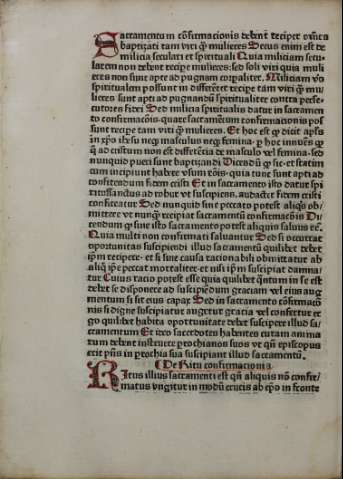 Sacramentum cōfirmacionis debent recipere omnes
baptizati tam viri ꝙ mulieres Secus enim est de
milicia seculari et spirituali Quia miliciam secu
larem non debent recipe mulieres: sed soli viri quia muli
eres non sunt apte ad pugnam corpalitet. Miliciam vo
spiritualem possunt indifferēter recipe tam viri ꝙ mu
lieres sunt apti ad pugnandū spiritualiter contra perse
cutores fidei Sed milicia spiritalis datur in sacramen
to confirmacōis. quare sacramētum confirmacionis pos
sunt recipe tam viri ꝙ mulieres. Et hoc est ꝙ dicit apls
in xp̄o ihesu neqʒ masculus neqʒ femina. p hoc innuēs ꝙ
q̄ ad cristum non est differēcia de masculo vel femina. sed
nunquid pueri sunt baptizandi Dicendū ꝙ sic. et statim
cum incipiunt habere vsum rōis. quia tunc sunt apti ad
confitendum fidem cristi Et in sacramento isto datur spi
ritussanctus ad robur vt suscipiens. audacter fidem cristi
confiteatur Sed nunquid sine peccato potest aliq̄s ob
mittere vt nunq̄ʒ recipiat sacramentū confirmacōis Di
cendum ꝙ sine isto sacramento potest aliquis saluus eē.
Quia multi non confirmati saluantur Sed si occurrat
oportunitas suscipiendi illud sacramentū quilibet debet
ip̄m recipere. et si sine causa racionabili obmittatur ab
aliq̄ ip̄e peccat mortaliter. et nisi ip̄m suscipiat damna/
tur Cuius racio potest esse quia quilibet q̄ntum in se est
debet se disponere ad suscipiēdum graciam vel eius aug
mentum si sit eius capax Sed in sacramento cōfirmacō
nis si digne suscipiatur augetur gracia vel confertur er
go quilibet habita oportunitate debet suscipere illud sa
cramentum Et ideo sacerdotes habentes curam anima
rum debent instruere prochianos suos vt qn̄ episcopus
erit p̄ns in prochia sua suscipiant illud sacramentū.
De Ritu confirmacionis
Ritus illius sacramenti est qn̄ aliquis nō confir/
matus vngitur in modū crucis ab ep̄o in fronte